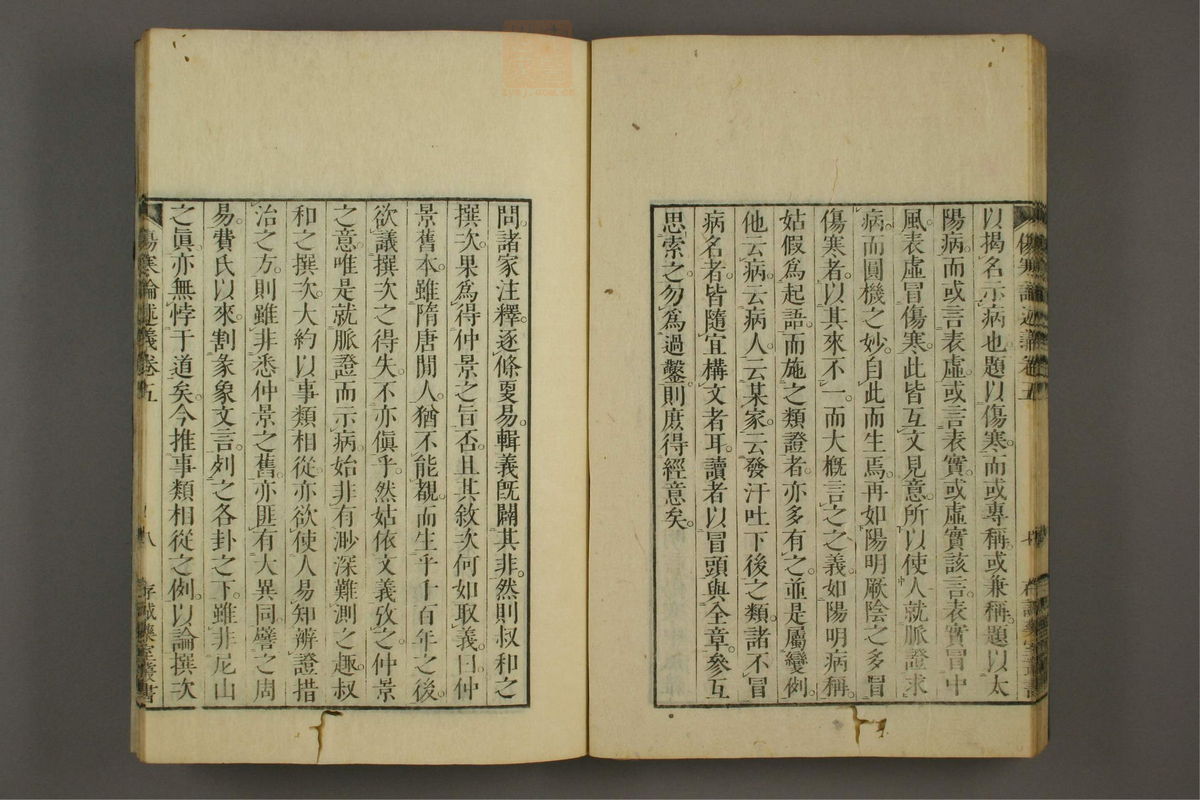 以揭名示病也。題以傷寒。而或專稱。或兼稱。題以太
陽病。而或言表虛。或言表實。或虛實該言。表實冒中
風。表虛冒傷寒。此皆互文見意。所以使人就脈證求
病。而圓機之妙。自此而生焉。再如陽明厥陰之多冒
傷寒者。以其來不一。而大概言之之義。如陽明病稱。
姑假爲起語。而施之類證者。亦多有之。並是屬變例。
他云病。云病人。云某家。云發汗吐下後之類。諸不冒
病名者。皆隨宜構文者耳。讀者以冒頭與全章。參互
思索之。勿爲過鑿。則庶得經意矣。
傷寒論述義卷五
七
存誠藥室叢書
問。諸家注釋。逐條更易。輯義既闢其非。然則叔和之
撰次。果爲得仲景之旨否。且其敘次何如取義。曰。仲
景舊本。雖隋唐間人。猶不能覩。而生乎千百年之後。
欲議撰次之得失。不亦傎乎。然姑依文義攷之。仲景
之意。唯是就脈證而示病。始非有渺深難測之趣。叔
和之撰次。大約以事類相從。亦欲使人易知辨證措
治之方。則雖非悉仲景之舊。亦匪有大異同。譬之周
易。費氏以來。割彖象文言。列之各卦之下。雖非尼山
之眞。亦無悖于道矣。今推事類相從之例。以論撰次
傷寒論述義卷五
八
存誠藥室叢書